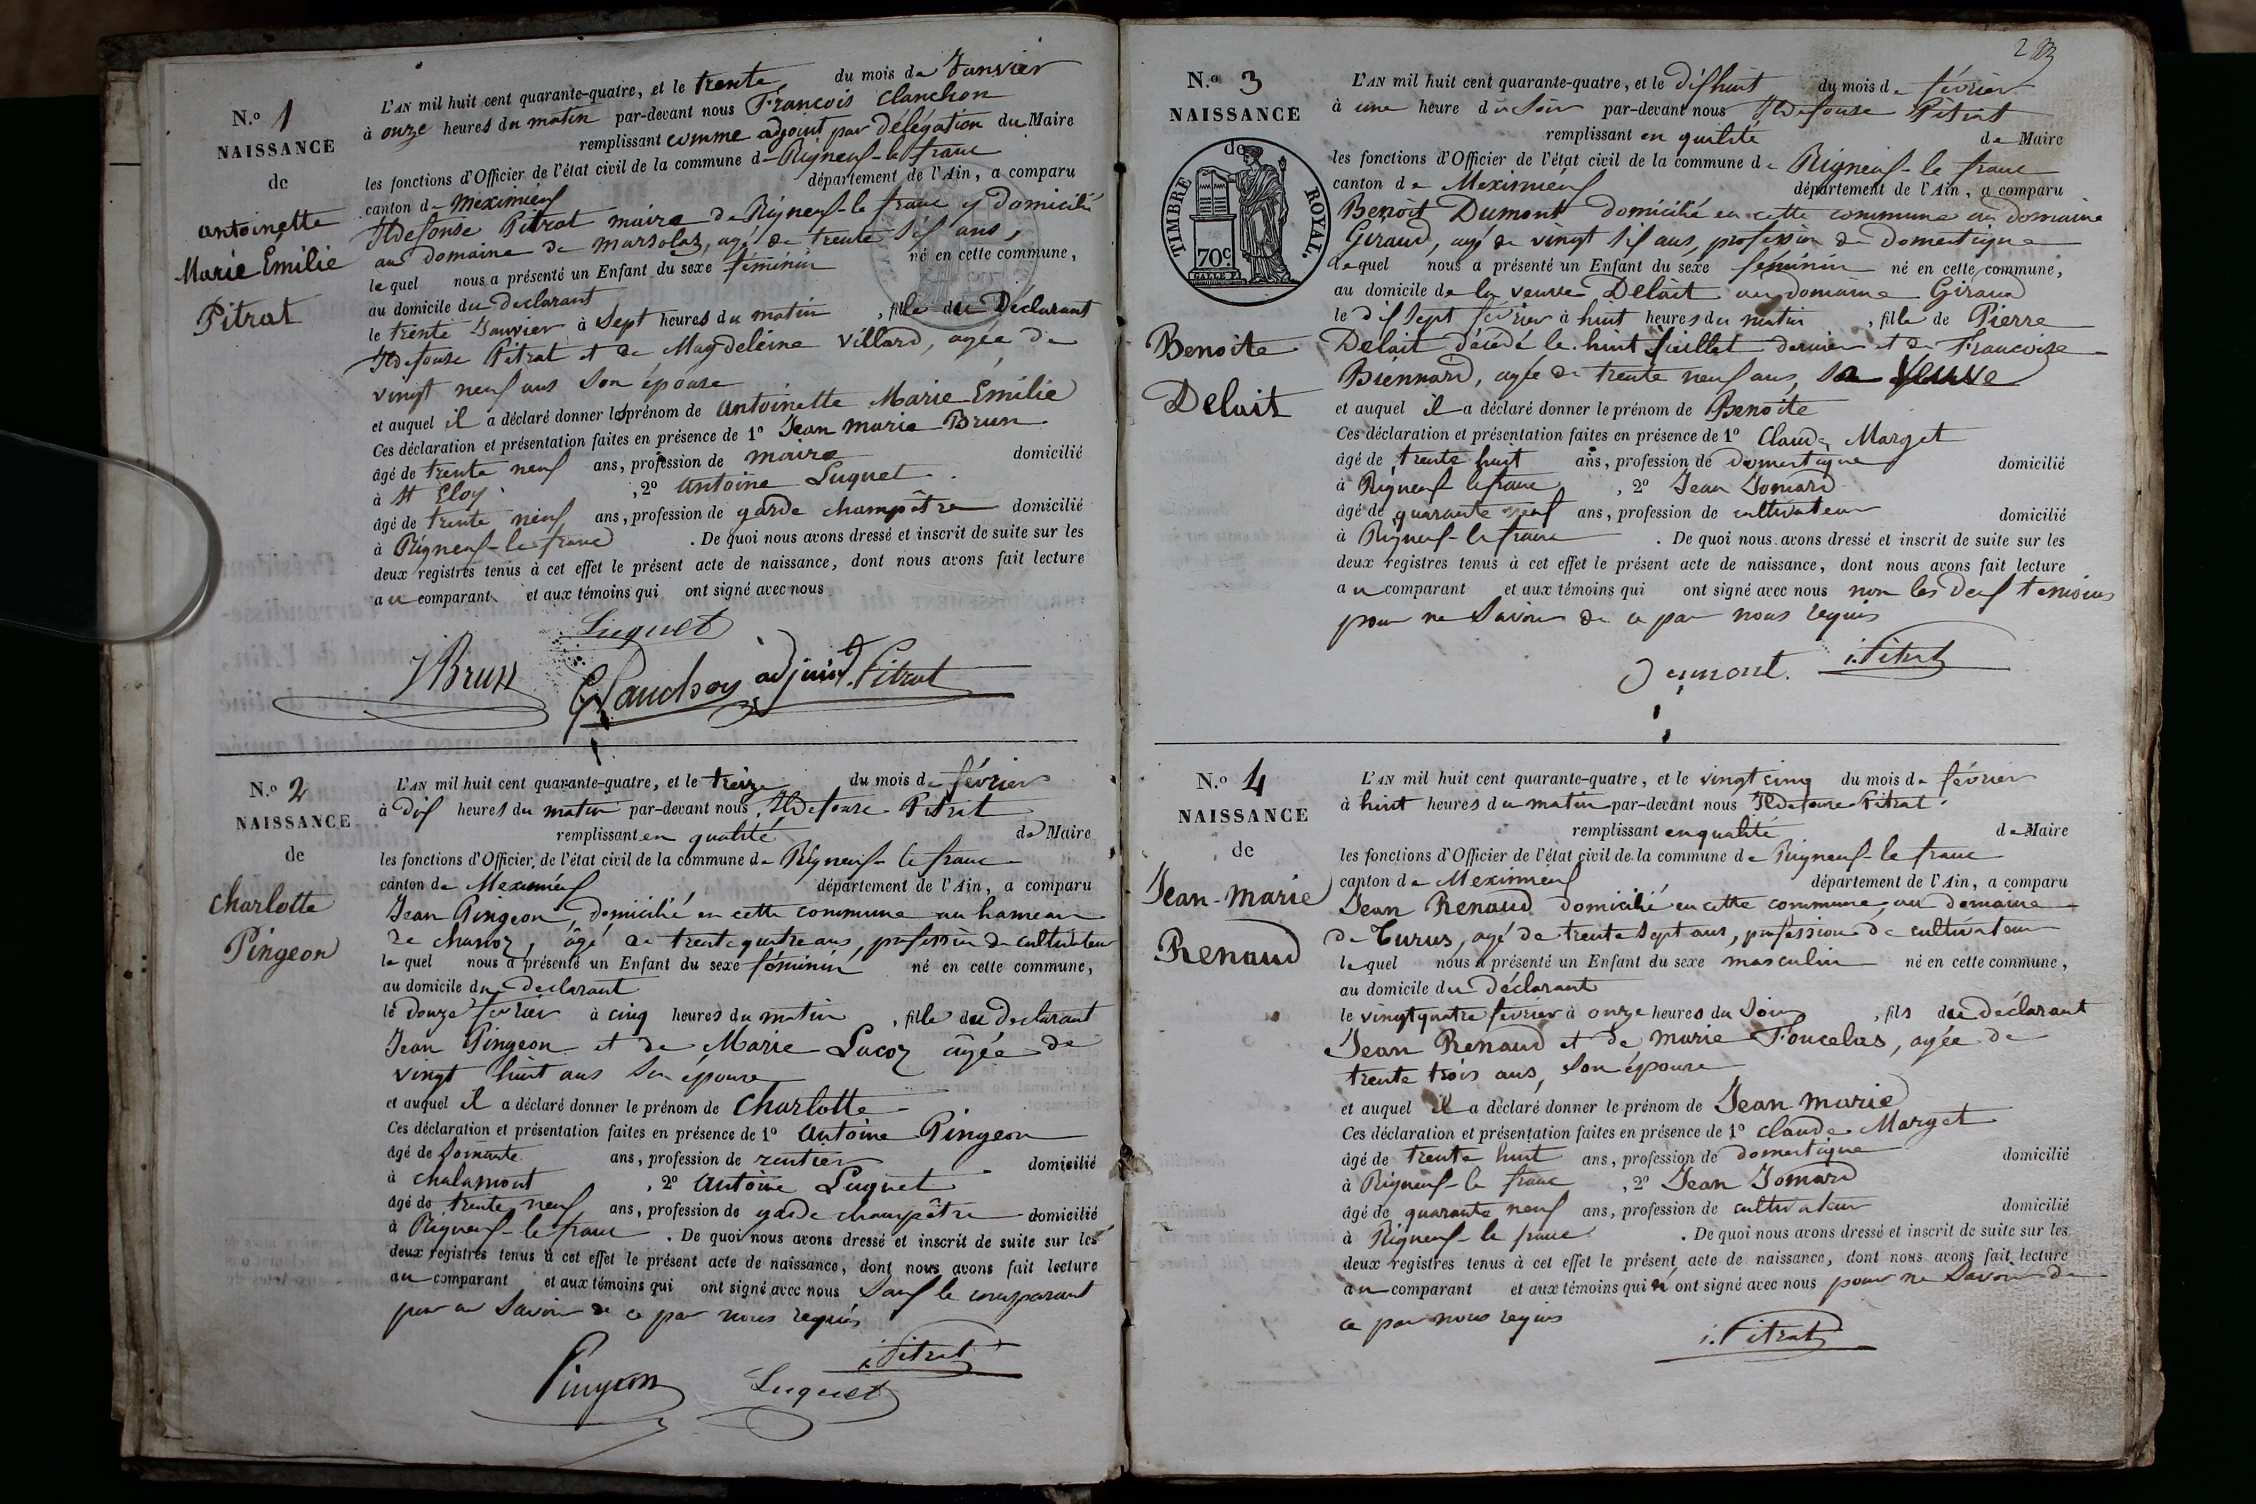 N.o 1
NAISSANCE
de
Antoinette
Marie Emilie
Pitrat
L'AN mil huit cent quarante-quatre, et le trente du mois de Janvier
à onze heures du matin par-devant nous François Clanchon
remplissant comme adjoint par délégation du Maire
les fonctions d'Officier de l'état civil de la commune de Rigneux-le franc
canton de Meximieux département de l'Ain, a comparu
Ildefonse Pitrat maire de Rigneux-le franc y domicilié
au domaine de Marsolas, agé de trente six ans,
lequel nous a présenté un Enfant du sexe féminin né en cette commune,
au domicile du declarant
le trente Janvier à Sept heures du matin, fille du Déclarant
Ildefonse Pitrat et de Magdeleine Villard, agée de
vingt neuf ans son épouse
et auquel il a déclaré donner les prénom de Antoinette Marie Emilie
Ces déclaration et présentation faites en présence de 1o Jean Marie Brun
âgé de trente neuf ans, profession de maire domicilié
à St Eloy, 2o Antoine Luquet
âgé de trente neuf ans, profession de garde champêtre domicilié
à Rigneux-le franc. De quoi nous avons dressé et inscrit de suite sur les
deux registres tenus à cet effet le présent acte de naissance, dont nous avons fait lecture
au comparant et aux témoins qui ont signé avec nous
Luquet
JBrun Clanchon adjoint i.Pitrat
N.o 2
NAISSANCE
de
Charlotte
Pingeon
L'AN mil huit cent quarante-quatre, et le treize du mois de février
à dix heures du matin par-devant nous Ildefonse Pitrat
remplissant en qualité de Maire
les fonctions d'Officier de l'état civil de la commune de Rigneux-le franc
canton de Meximieux département de l'Ain, a comparu
Jean Pingeon, domicilié en cette commune au hameau
de chanoz, âgé de trente quatre ans, profession de cultivateur
lequel nous a présenté un Enfant du sexe féminin né en cette commune,
au domicile du declarant
le douze février à cinq heures du matin, fille du declarant
Jean Pingeon et de Marie Lacoz agée de
vingt huit ans son épouse
et auquel il a déclaré donner le prénom de Charlotte
Ces déclaration et présentation faites en présence de 1o Antoine Pingeon
âgé de soixante ans, profession de rentier domicilié
à chalamont, 2o Antoine Luquet
âgé de trente neuf ans, profession de garde champêtre domicilié
à Rigneux-le franc. De quoi nous avons dressé et inscrit de suite sur les
deux registres tenus à cet effet le présent acte de naissance, dont nous avons fait lecture
au comparant et aux témoins qui ont signé avec nous Sauf le comparant
pour ne Savoir de ce par nous requis
i.Pitrat
Pingeon Luquet
N.o 3
NAISSANCE
de
TIMBRE ROYAL.
70c.
Benoite
Delait
L'AN mil huit cent quarante-quatre, et le dixhuit du mois de février
à une heure du Soir par-devant nous Ildefonse Pitrat
remplissant en qualité de Maire
les fonctions d'Officier de l'état civil de la commune de Rigneux-le franc
canton de Meximieux département de l'Ain, a comparu
Benoit Dumont domicilié en cette commune au domaine
Giraud, agé de vingt six ans, profession de domestique
lequel nous a présenté un Enfant du sexe féminin né en cette commune,
au domicile de la veuve Delait au domaine Giraud
le dix sept février à huit heures du matin, fille de Pierre
Delait décédé le huit juillet dernier et de Francoise
Biennard, agée de trente neuf ans, sa veuve
et auquel il a déclaré donner le prénom de Benoite
Ces déclaration et présentation faites en présence de 1o Claude Marget
âgé de trente huit ans, profession de domestique domicilié
à Rigneux le franc, 2o Jean Jomard
âgé de quarante neuf ans, profession de cultivateur domicilié
à Rigneux-le franc. De quoi nous avons dressé et inscrit de suite sur les
deux registres tenus à cet effet le présent acte de naissance, dont nous avons fait lecture
au comparant et aux témoins qui ont signé avec nous non les deux temoins
pour ne Savoir de ce par nous requis
Dumont. i.Pitrat
N.o 4
NAISSANCE
de
Jean-Marie
Renaud
L'AN mil huit cent quarante-quatre, et le vingt cinq du mois de février
à huit heures du matin par-devant nous Ildefonse Pitrat
remplissant en qualité de Maire
les fonctions d'Officier de l'état civil de la commune de Rigneux-le franc
canton de Meximieux département de l'Ain, a comparu
Jean Renaud domicilié en cette commune, au domaine
de Turus, agé de trente sept ans, profession de cultivateur
lequel nous a présenté un Enfant du sexe masculin né en cette commune,
au domicile du déclarant
le vingt quatre février à onze heures du Soir, fils du déclarant
Jean Renaud et de Marie Foucelas, agée de
trente trois ans, son épouse
et auquel il a déclaré donner le prénom de Jean Marie
Ces déclaration et présentation faites en présence de 1o Claude Marget
âgé de trente huit ans, profession de domestique domicilié
à Rigneux-le franc, 2o Jean Jomard
âgé de quarante neuf ans, profession de cultivateur domicilié
à Rigneux-le franc. De quoi nous avons dressé et inscrit de suite sur les
deux registres tenus à cet effet le présent acte de naissance, dont nous avons fait lecture
au comparant et aux témoins qui n'ont signé avec nous pour ne Savoir de
ce par nous requis
i.Pitrat